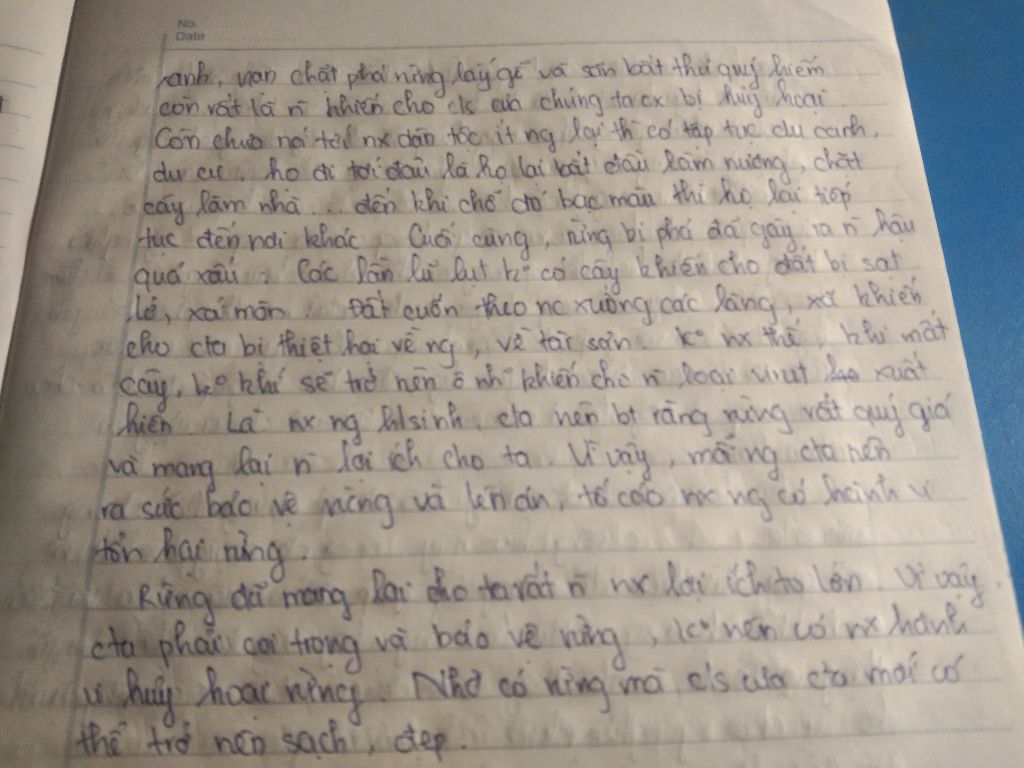 No.
Date
xanh, nạn chặt phá rừng lấy gỗ và săn bắt thú quý hiếm
còn vất là n̄ khiến cho c/s của chúng ta cx bị hủy hoại.
Còn chưa nói tới nx dân tộc ít ng lại thì có tập tục du canh,
du cư, họ đi tới đâu là họ lại bắt đầu làm nương, chặt
cây làm nhà... đến khi chỗ đó bạc màu thì họ lại tiếp
tục đến nơi khác. Cuối cùng, rừng bị phá đã gây ra n̄ hậu
quả xấu. Các lần lũ lụt ko có cây khiến cho đất bị sạt
lở, xói mòn. Đất cuốn theo nc xuống các làng, xã khiến
cho cta bị thiệt hại về ng, về tài sản. Ko nx thế, khi mất
cây, ko khí sẽ trở nên ô nh khiến cho n̄ loại virut xuất
hiện. Là nx ng hlsinh, cta nên bt rằng rừng rất quý giá
và mang lại n̄ lợi ích cho ta. Vì vậy, mỗi ng cta nên
ra sức bảo vệ rừng và lên án, tố cáo nx ng có hành vi
tổn hại rừng.
Rừng đã mang lại cho ta rất n̄ nx lợi ích to lớn. Vì vậy,
cta phải coi trọng và bảo vệ rừng, ko nên có nx hành
vi hủy hoại rừng. Nhờ có rừng mà c/s của cta mới có
thể trở nên sạch, đẹp.